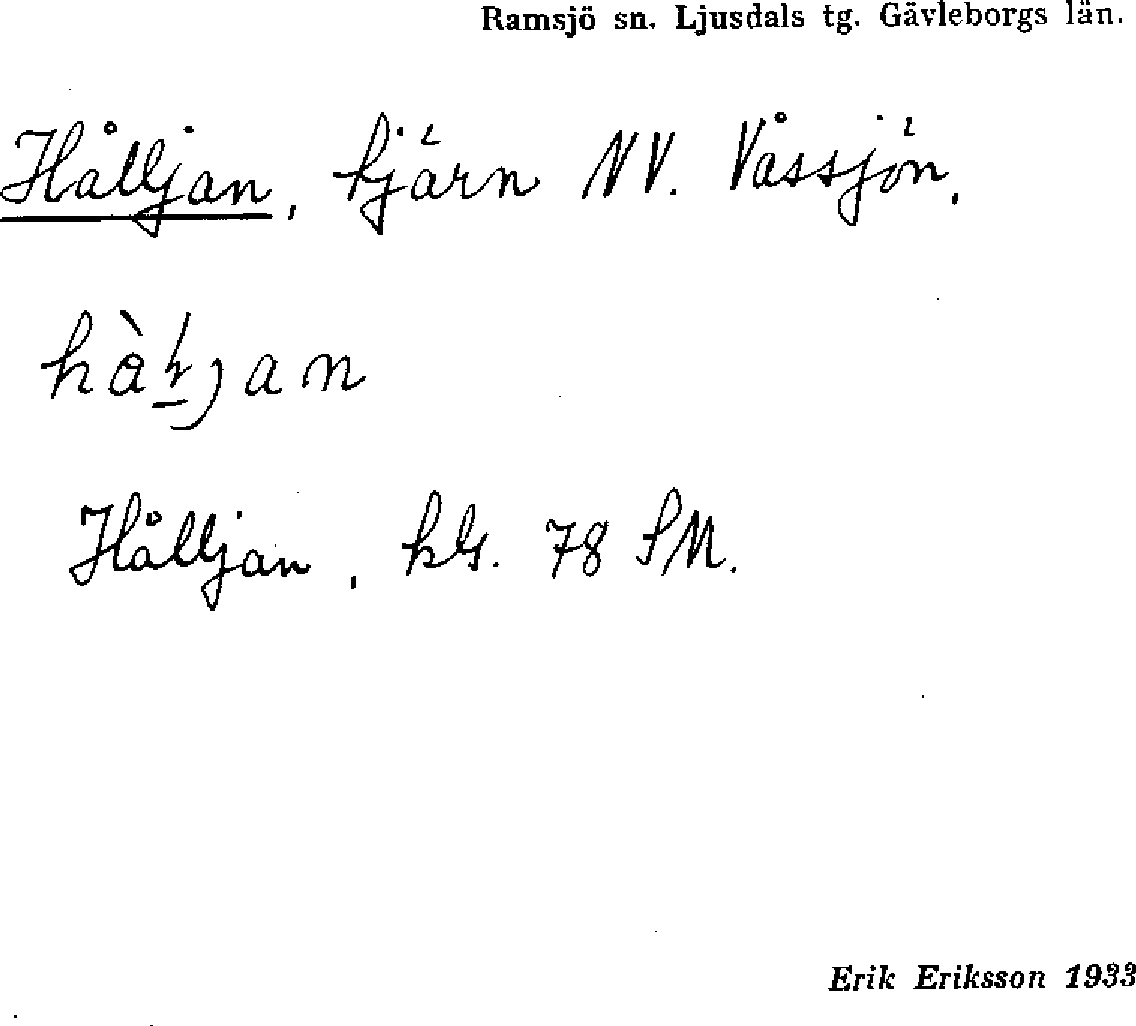 Ramsjö sn. Ljusdals tg. Gävleborgs län.
Hålljan, tjärn NV. Våssjön.
Hålljan, kbl. 78 SM.
Erik Eriksson 1933